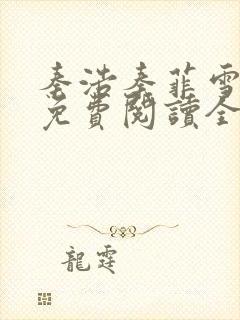 秦浩秦菲雪
免費閱讀全
龍霆